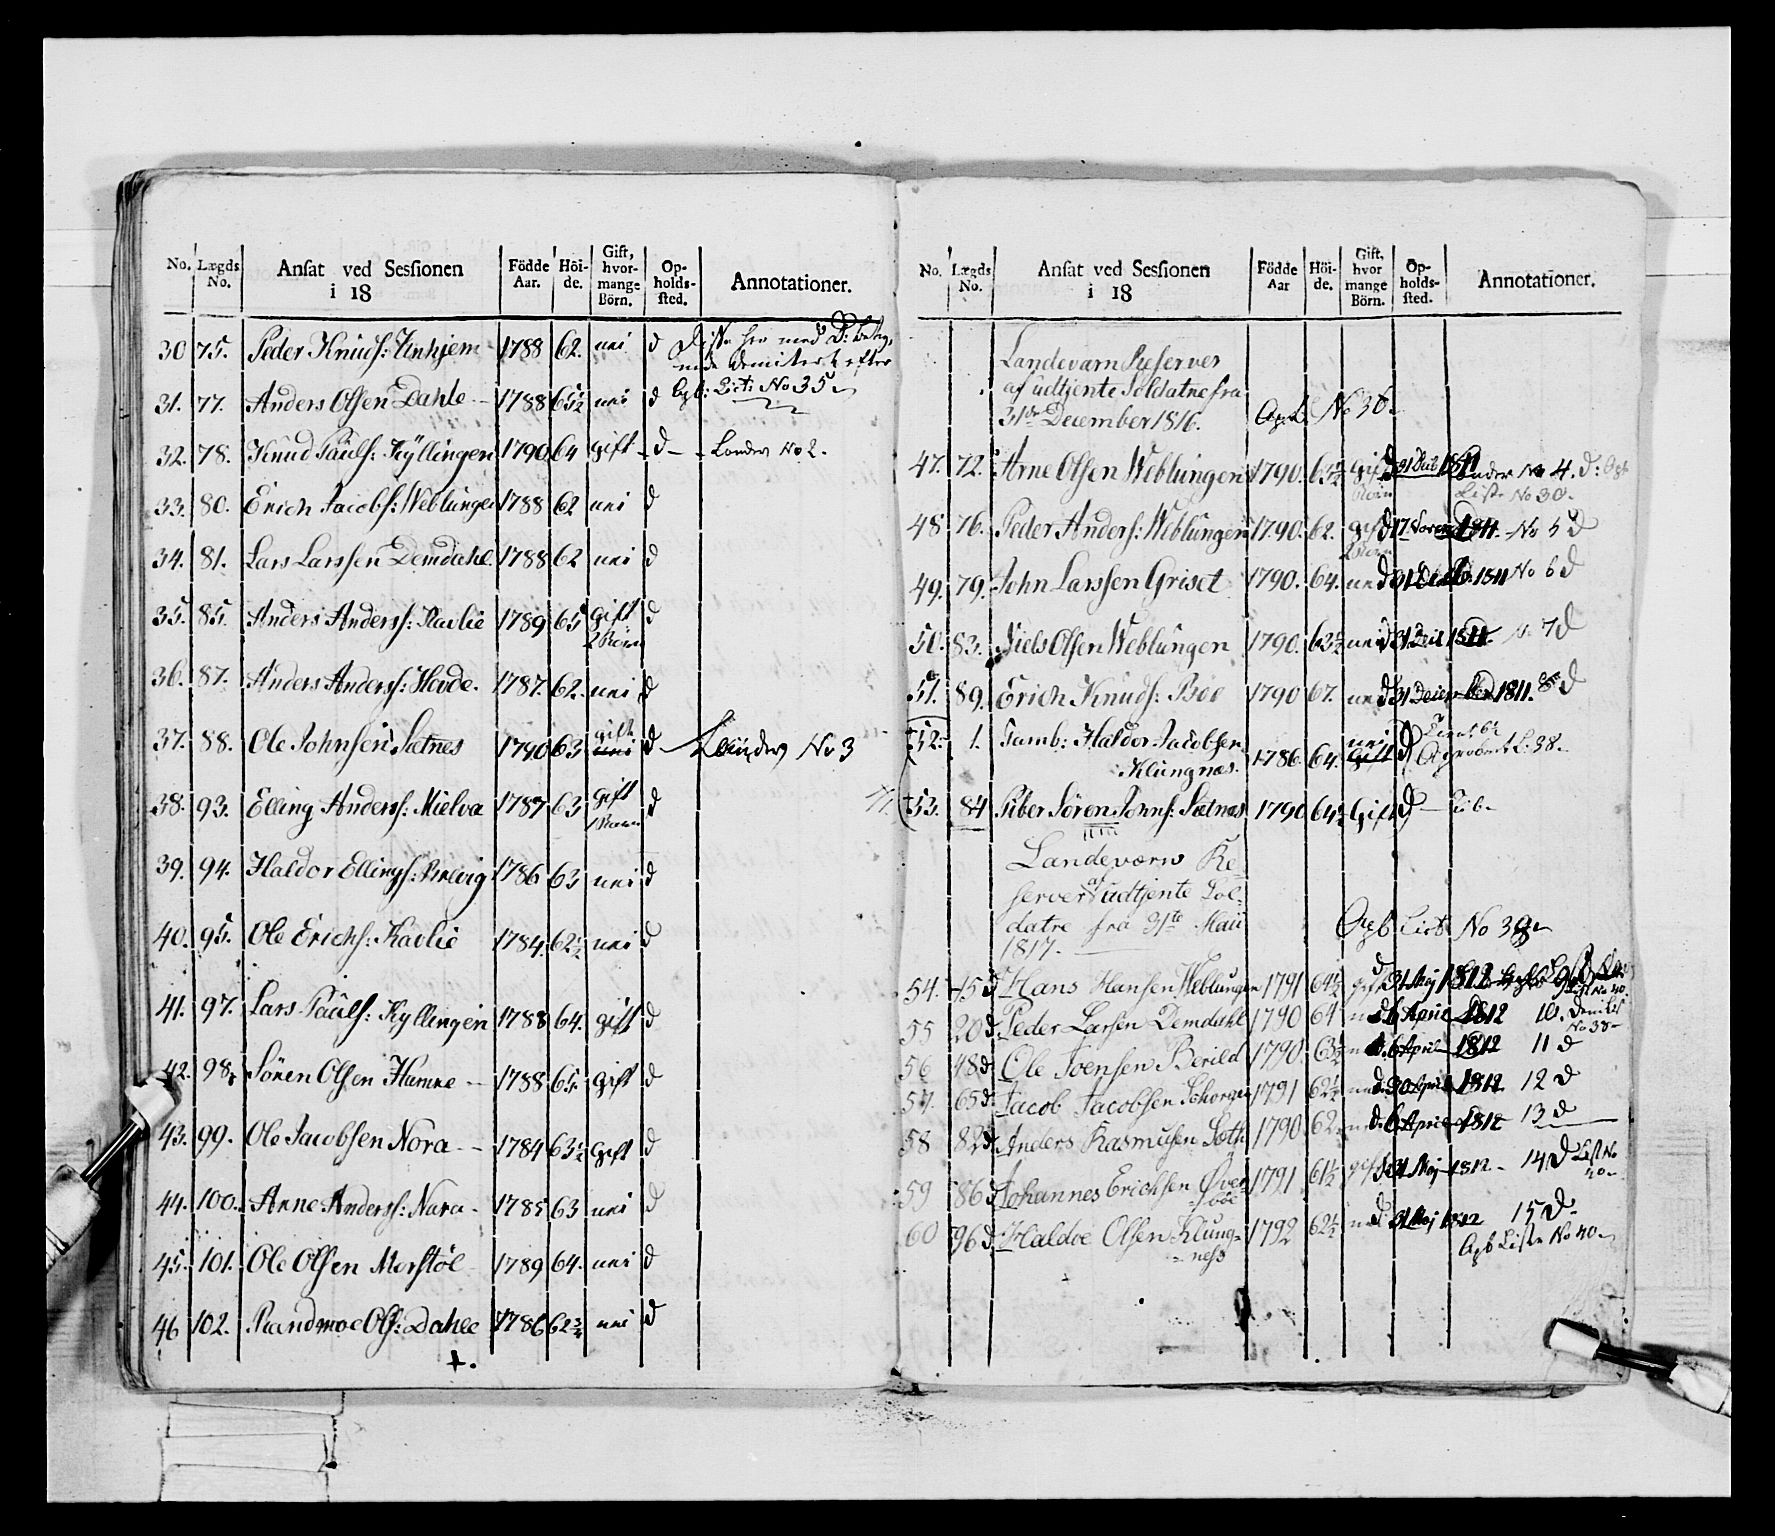 No. Lægds No. Ansat ved Sessionen i 18 Födde Aar. Höi-de. Gift, hvor-mange Börn. Op-holds-sted. Annotationer.
30 75. Peder Knuds: Unhjem 1788 62. uni d
31. 77. Anders Olsen Dahle 1788 65½ uni d No 35
32. 78. Knud Paüls: Kÿllingen 1790 64 gift d Landev No 2.
33. 80. Erich Jacobs: Weblunge 1788 62 uni d
34. 81. Lars Larssen Demdahl 1788 62 uni d
35. 85. Anders Anders: Ravlie 1789 65 gift d
36. 87. Anders Anders: Hovde. 1787. 62. uni d
37. 88. Ole Johnsen Sætnes 1790 63 gift uni d Landev No 3
38. 93. Elling Anders: Mielva 1787 63 gift d
39. 94. Haldor Ellings: Brevig 1786 63 uni d
40. 95. Ole Erichs: Kavlie 1784. 62½ uni d
41. 97. Lars Paüls: Kyllingen 1788 64. gift d
42. 98. Sören Olsen Hamre 1788 65. gift d
43. 99. Ole Jacobsen Nora 1784 63½ gift d
44. 100. Arne Anders: Nara 1785 63 uni d
45. 101. Ole Olsen Morstöl 1789 64. uni d
46 102. Randmoe Ols: Dahle 1786 62¾ uni d
No. Lægds No. Ansat ved Sessionen i 18 Födde Aar Höi-de. Gift, hvor mange Börn. Op-holds-sted. Annotationer.
Landevarn Reserver
af udtjente Soldatne fra
31de December 1816. No 36
47. 72. Arne Olsen Weblungen 1790. 63½ No 4. d
Liste No 30
48 76. Peder Anders: Weblungen 1790. 62. 1811. No 5 d
49. 79. John Larssen Griset 1790. 64. 1811 No 6 d
50. 83. Niels Olsen Weblungen 1790. 63½ uni 31 1811 No 7 d
51. 89. Erich Knuds: Böe 1790 67. 31 1811. 8 d
52. 1. Tamb: Haldor Jacobsen
Klungnæs. 1786. 64. uni gift d
53. 84 Piber Sören Johns: Sætnæs 1790 64½ Gift d
Landeværns Re-
server af udtjente Sol-
datre fra 31te Maii
1817. List No 39
54. 15 d Hans Hansen Weblungen 1791 64½ 31 Maj 1812
55 20 d Peder Larsen Demdahl 1790 64 6 April 1812 10. No 38
56 48 d Ole Joensen Berild 1790. 63½ 6 April 1812 11 d
57. 65 d Jacob Jacobsen 1791 62½ 30 April 1812 12 d
58 82 d Anders Rasmusen Sæth 1790 62 6 April 1812 13 d
59 86 d Johannes Erichsen Över-
böe 1791 61½ gift 31 Maj 1812 14 d List No 40
60 96 d Haldoe Olsen Klung-
ness 1792 62½ 31 Maj 1812 15 d
Liste No 40